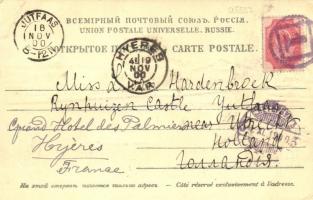 ВСЕМІРНЫЙ ПОЧТОВЫЙ СОЮЗЪ. РОССІЯ.
UNION POSTALE UNIVERSELLE. RUSSIE.
ОТКРЫТОЕ CARTE POSTALE.
JUTFAAS
18
NOV
00
8-12N
HYERES
19
NOV
00
VAR
Miss A Hardenbroek
Rynhuizen Castle Jutfaas
Grand Hotel des Palmiers near Utrecht
Hyères Holland
France Голландія
На этой сторонѣ пишется только адресъ. — Côté réservé exclusivement à l'adresse.